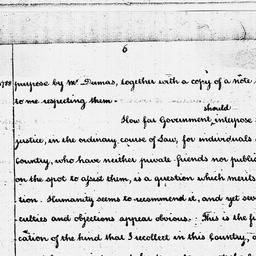 6
1788 purpose by Mr Dumas, together with a copy of a note
to me respecting them.
should
How far Government, interpose
justice, in the ordinary course of Law, for individuals
Country, who have neither private friends nor public
on the spot to assist them, is a question which merits
tion. Humanity seems to recommend it, and yet sev
culties and objections appear obvious. This is the fi
cation of the kind that I recollect in this Country,